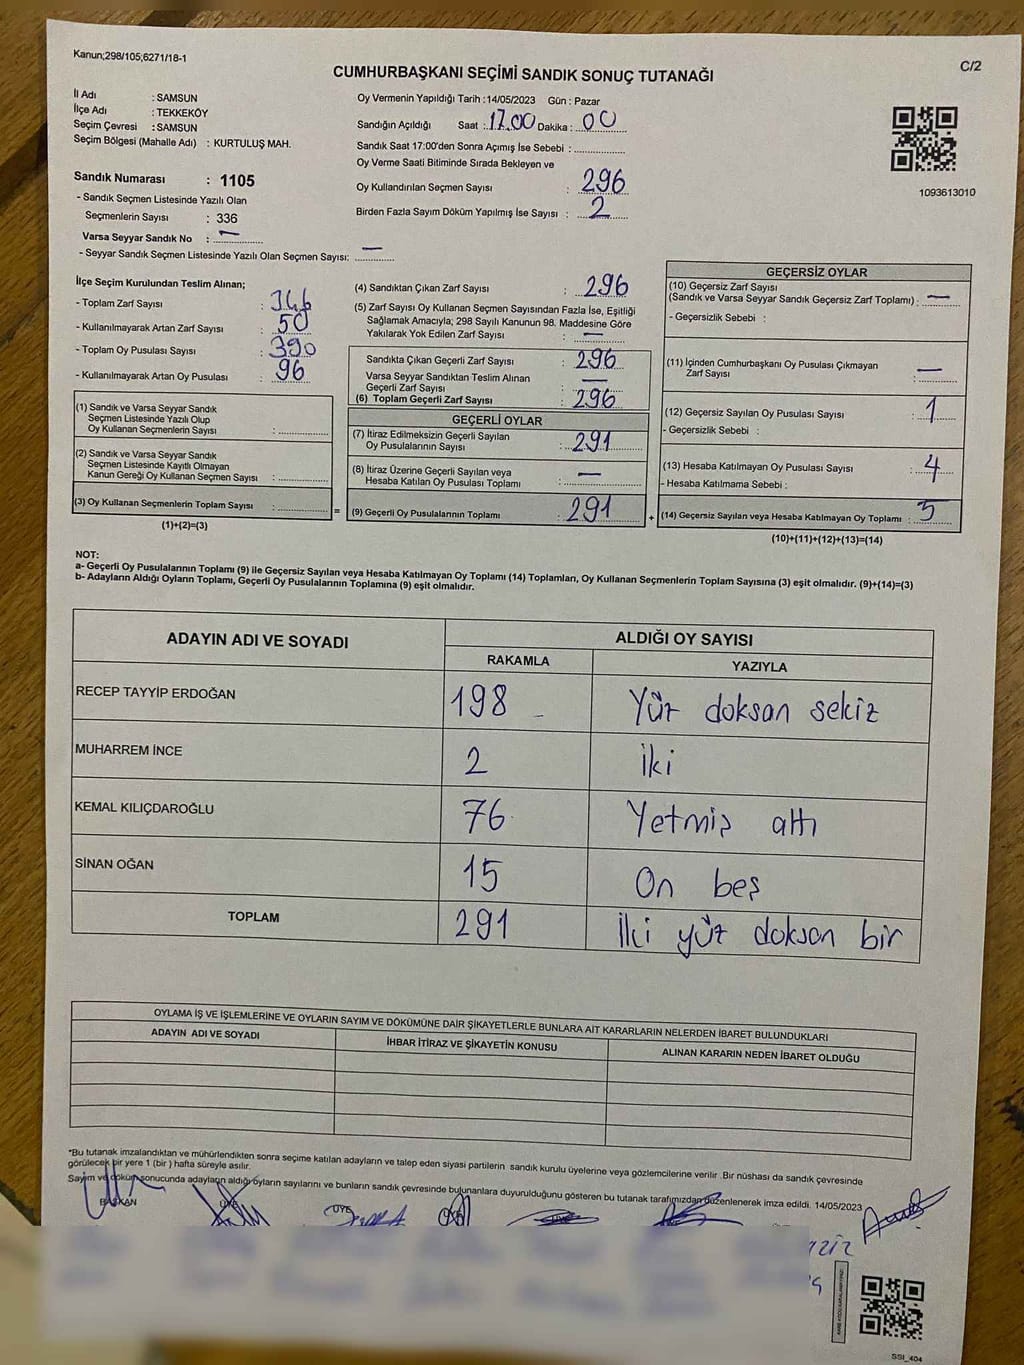 Kanun;298/105;6271/18-1
C/2
CUMHURBAŞKANI SEÇİMİ SANDIK SONUÇ TUTANAĞI
İl Adı : SAMSUN
İlçe Adı : TEKKEKÖY
Seçim Çevresi : SAMSUN
Seçim Bölgesi (Mahalle Adı) : KURTULUŞ MAH.
Sandık Numarası : 1105
- Sandık Seçmen Listesinde Yazılı Olan
Seçmenlerin Sayısı : 336
Varsa Seyyar Sandık No : —
- Seyyar Sandık Seçmen Listesinde Yazılı Olan Seçmen Sayısı: —
Oy Vermenin Yapıldığı Tarih : 14/05/2023 Gün : Pazar
Sandığın Açıldığı Saat : 17.00 Dakika : 00
Sandık Saat 17:00'den Sonra Açımış İse Sebebi :
Oy Verme Saati Bitiminde Sırada Bekleyen ve
Oy Kullandırılan Seçmen Sayısı : 296
Birden Fazla Sayım Döküm Yapılmış İse Sayısı : 2
1093613010
İlçe Seçim Kurulundan Teslim Alınan;
- Toplam Zarf Sayısı : 346
- Kullanılmayarak Artan Zarf Sayısı : 50
- Toplam Oy Pusulası Sayısı : 390
- Kullanılmayarak Artan Oy Pusulası : 96
(1) Sandık ve Varsa Seyyar Sandık
Seçmen Listesinde Yazılı Olup
Oy Kullanan Seçmenlerin Sayısı :
(2) Sandık ve Varsa Seyyar Sandık
Seçmen Listesinde Kayıtlı Olmayan
Kanun Gereği Oy Kullanan Seçmen Sayısı :
(3) Oy Kullanan Seçmenlerin Toplam Sayısı :
(1)+(2)=(3)
(4) Sandıktan Çıkan Zarf Sayısı : 296
(5) Zarf Sayısı Oy Kullanan Seçmen Sayısından Fazla İse, Eşitliği
Sağlamak Amacıyla; 298 Sayılı Kanunun 98. Maddesine Göre
Yakılarak Yok Edilen Zarf Sayısı : —
Sandıkta Çıkan Geçerli Zarf Sayısı : 296
Varsa Seyyar Sandıktan Teslim Alınan
Geçerli Zarf Sayısı : —
(6) Toplam Geçerli Zarf Sayısı : 296
GEÇERLİ OYLAR
(7) İtiraz Edilmeksizin Geçerli Sayılan
Oy Pusulalarının Sayısı : 291
(8) İtiraz Üzerine Geçerli Sayılan veya
Hesaba Katılan Oy Pusulası Toplamı : —
= (9) Geçerli Oy Pusulalarının Toplamı : 291
GEÇERSİZ OYLAR
(10) Geçersiz Zarf Sayısı
(Sandık ve Varsa Seyyar Sandık Geçersiz Zarf Toplamı) : —
- Geçersizlik Sebebi :
(11) İçinden Cumhurbaşkanı Oy Pusulası Çıkmayan
Zarf Sayısı : —
(12) Geçersiz Sayılan Oy Pusulası Sayısı : 1
- Geçersizlik Sebebi :
(13) Hesaba Katılmayan Oy Pusulası Sayısı : 4
- Hesaba Katılmama Sebebi :
+ (14) Geçersiz Sayılan veya Hesaba Katılmayan Oy Toplamı : 5
(10)+(11)+(12)+(13)=(14)
NOT:
a- Geçerli Oy Pusulalarının Toplamı (9) ile Geçersiz Sayılan veya Hesaba Katılmayan Oy Toplamı (14) Toplamları, Oy Kullanan Seçmenlerin Toplam Sayısına (3) eşit olmalıdır. (9)+(14)=(3)
b- Adayların Aldığı Oyların Toplamı, Geçerli Oy Pusulalarının Toplamına (9) eşit olmalıdır.
ADAYIN ADI VE SOYADI ALDIĞI OY SAYISI
RAKAMLA YAZIYLA
RECEP TAYYİP ERDOĞAN 198 Yüz doksan sekiz
MUHARREM İNCE 2 İki
KEMAL KILIÇDAROĞLU 76 Yetmiş altı
SİNAN OĞAN 15 On beş
TOPLAM 291 İki yüz doksan bir
OYLAMA İŞ VE İŞLEMLERİNE VE OYLARIN SAYIM VE DÖKÜMÜNE DAİR ŞİKAYETLERLE BUNLARA AİT KARARLARIN NELERDEN İBARET BULUNDUKLARI
ADAYIN ADI VE SOYADI İHBAR İTİRAZ VE ŞİKAYETİN KONUSU ALINAN KARARIN NEDEN İBARET OLDUĞU
*Bu tutanak imzalandıktan ve mühürlendikten sonra seçime katılan adayların ve talep eden siyasi partilerin sandık kurulu üyelerine veya gözlemcilerine verilir .Bir nüshası da sandık çevresinde
görülecek bir yere 1 (bir ) hafta süreyle asılır.
Sayım ve döküm sonucunda adayların aldığı oyların sayılarını ve bunların sandık çevresinde bulunanlara duyurulduğunu gösteren bu tutanak tarafımızdan düzenlenerek imza edildi. 14/05/2023
BAŞKAN ÜYE ÜYE ÜYE
SSI_404